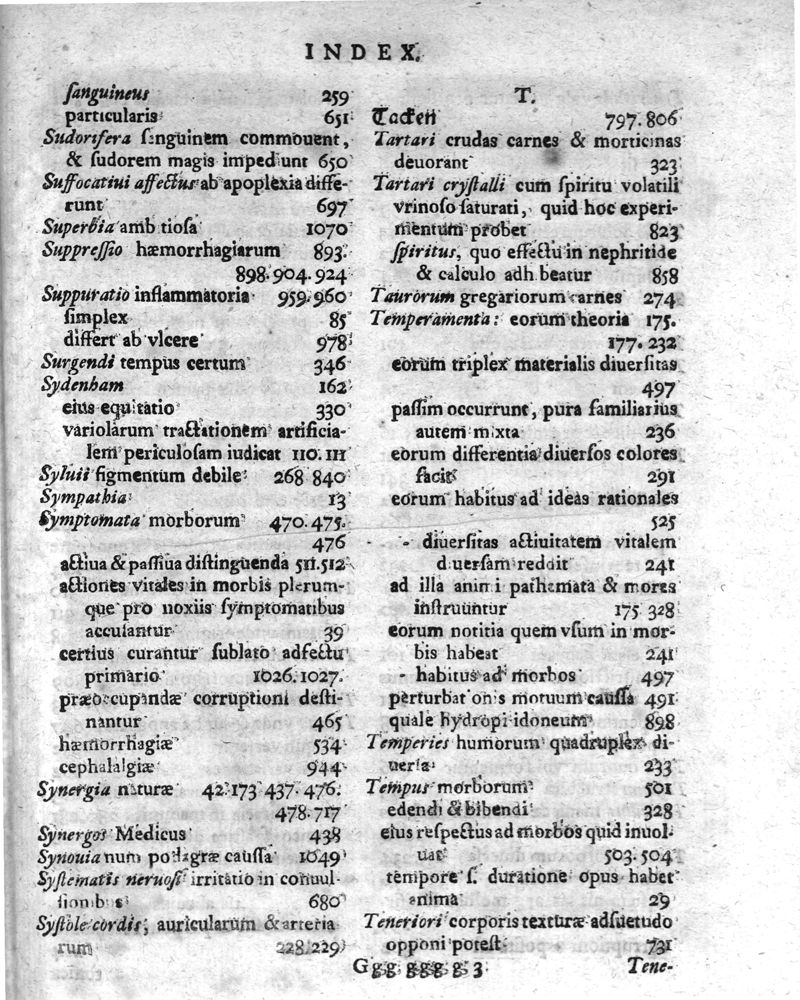 INDEX.
ſanguineus 259
particularis 651
Sudorifera ſanguinem commouent,
& ſudorem magis impediunt 650
Suffocatiui affectus ab apoplexia diffe-
runt 697
Superbia ambitioſa 1070
Suppreſſio hæmorrhagiarum 893.
898. 904. 924
Suppuratio inflammatoria 959. 960
ſimplex 85
differt ab vlcere 978
Surgendi tempus certum 346
Sydenham 162
eius equitatio 330
variolarum tractationem artificia-
lem periculoſam iudicat 110. 111
Syluii figmentum debile 268 840
Sympathia 13
Symptomata morborum 470. 475.
476
actiua & paſſiua diſtinguenda 511. 512
actiones vitales in morbis plerum-
que pro noxiis ſymptomatibus
accuſantur 39
certius curantur ſublato adfectu
primario 1026. 1027.
præoccupandæ corruptioni deſti-
nantur 465
hæmorrhagiæ 534
cephalalgiæ 944
Synergia naturæ 42. 173 437. 476.
478. 717
Synergos Medicus 438
Synouia num podagræ cauſſa 1049
Syſtematis neruoſi irritatio in conuul-
ſionibus 680
Syſtole cordis, auricularum & arteria
rum 228. 229
T.
Tacken 797. 806
Tartari crudas carnes & morticinas
deuorant 323
Tartari cryſtalli cum ſpiritu volatili
vrinoſo ſaturati, quid hoc experi-
mentum probet 823
ſpiritus, quo effectu in nephritide
& calculo adhibeatur 858
Taurorum gregariorum carnes 274
Temperamenta: eorum theoria 175.
177. 232
eorum triplex materialis diuerſitas
497
paſſim occurrunt, pura familiarius
autem mixta 236
eorum differentia diuerſos colores
facit 291
eorum habitus ad ideas rationales
525
- - diuerſitas actiuitatem vitalem
diuerſam reddit 241
ad illa animi pathemata & mores
inſtruuntur 175 328
eorum notitia quem vſum in mor-
bis habeat 241
- habitus ad morbos 497
perturbationis motuum cauſſa 491
quale hydropi idoneum 898
Temperies humorum quadruplex di-
uerſa 233
Tempus morborum 501
edendi & bibendi 328
eius reſpectus ad morbos quid inuol-
uat 503. 504
tempore ſ. duratione opus habet
anima 29
Teneriori corporis texturæ adſuetudo
opponi poteſt 731
Ggg ggg g 3 Tene-